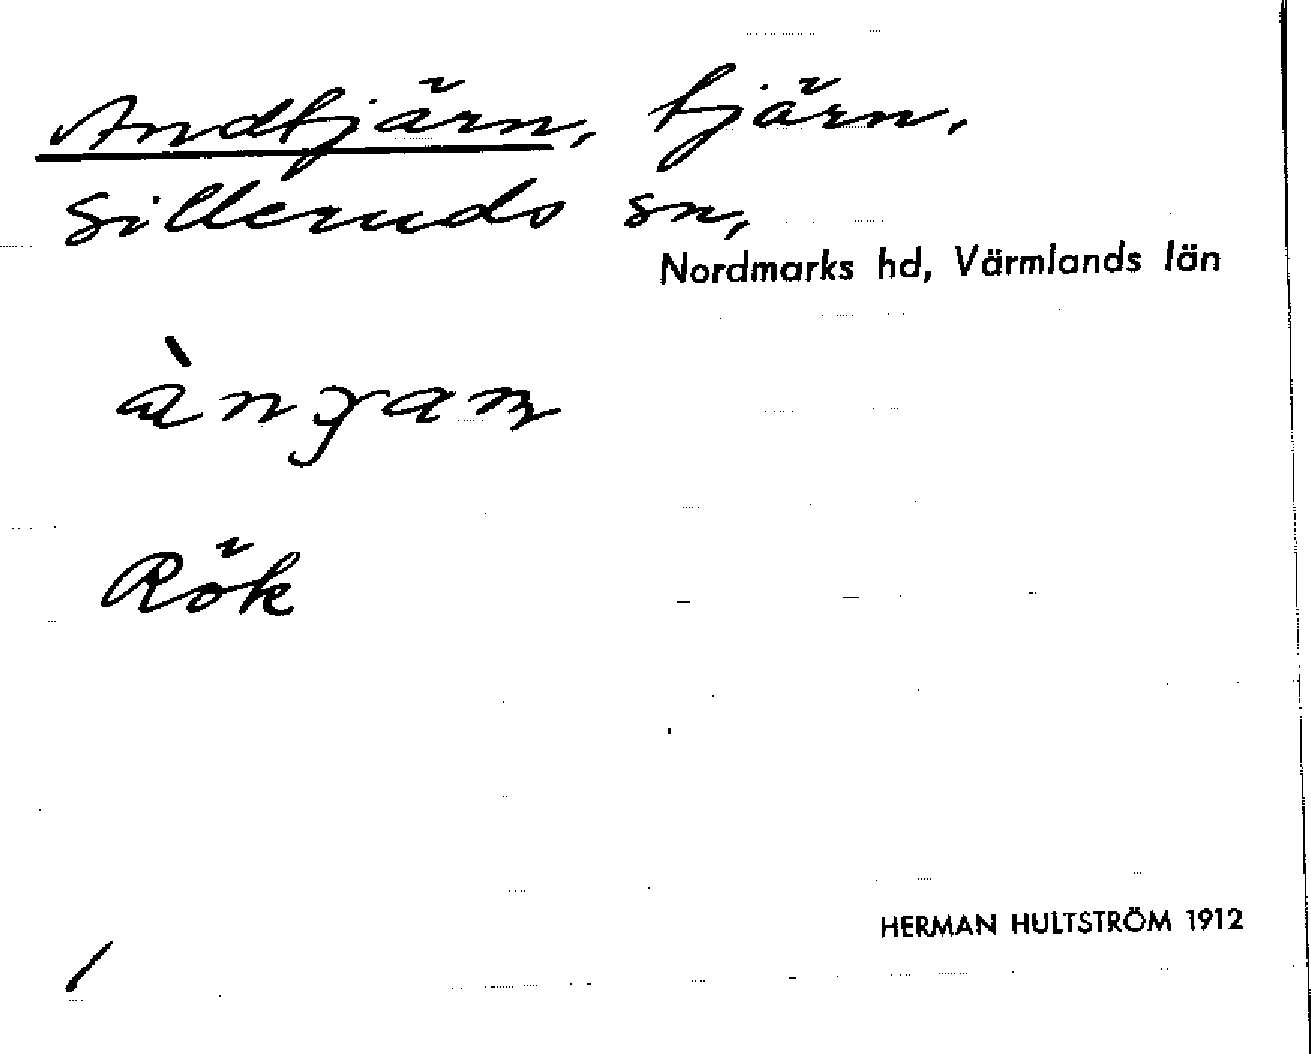 Andtjärn, tjärn,
Silleruds sn,
Nordmarks hd, Värmlands län
Rök
HERMAN HULTSTRÖM 1912
/